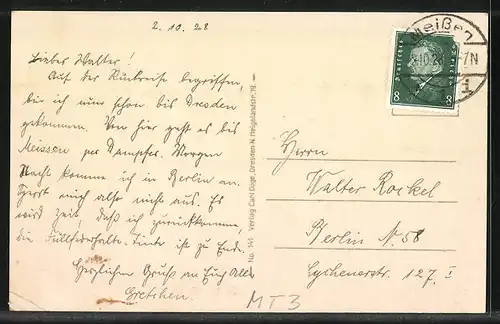 2.10.28
Liebes Walter!
Auf der Rückreise begriffen,
bin ich nun schon bis Dresden
gekommen. Von hier geht es bis
Meissen per Dampfer. Morgen
Nacht komme ich in Berlin an.
Sperrt mich also nicht aus. Es
wird Zeit, daß ich zurückkomme,
die Füllfederhalter-Tinte ist zu Ende.
Herzlichen Gruß an Euch Alle
Gretchen.
No. 141 Verlag Carl Döge, Dresden-N.
Meißen
2.10.28
7N
Deutsches Reich
8 8
Herrn
Walter Rockel
Berlin N. 58
Lychenerstr. 127. I
MT3